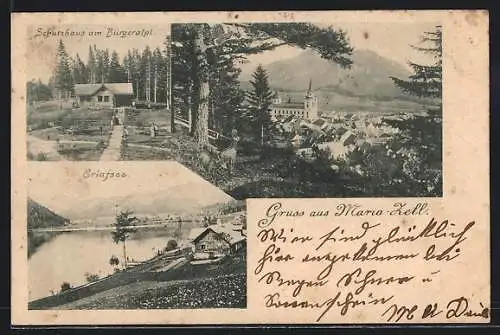 Schutzhaus am Bürgeralpl.
Erlafsee.
Gruss aus Maria-Zell.
Wir sind glücklich
hier angekommen bei
Regen Schnee u
Sonnenschein